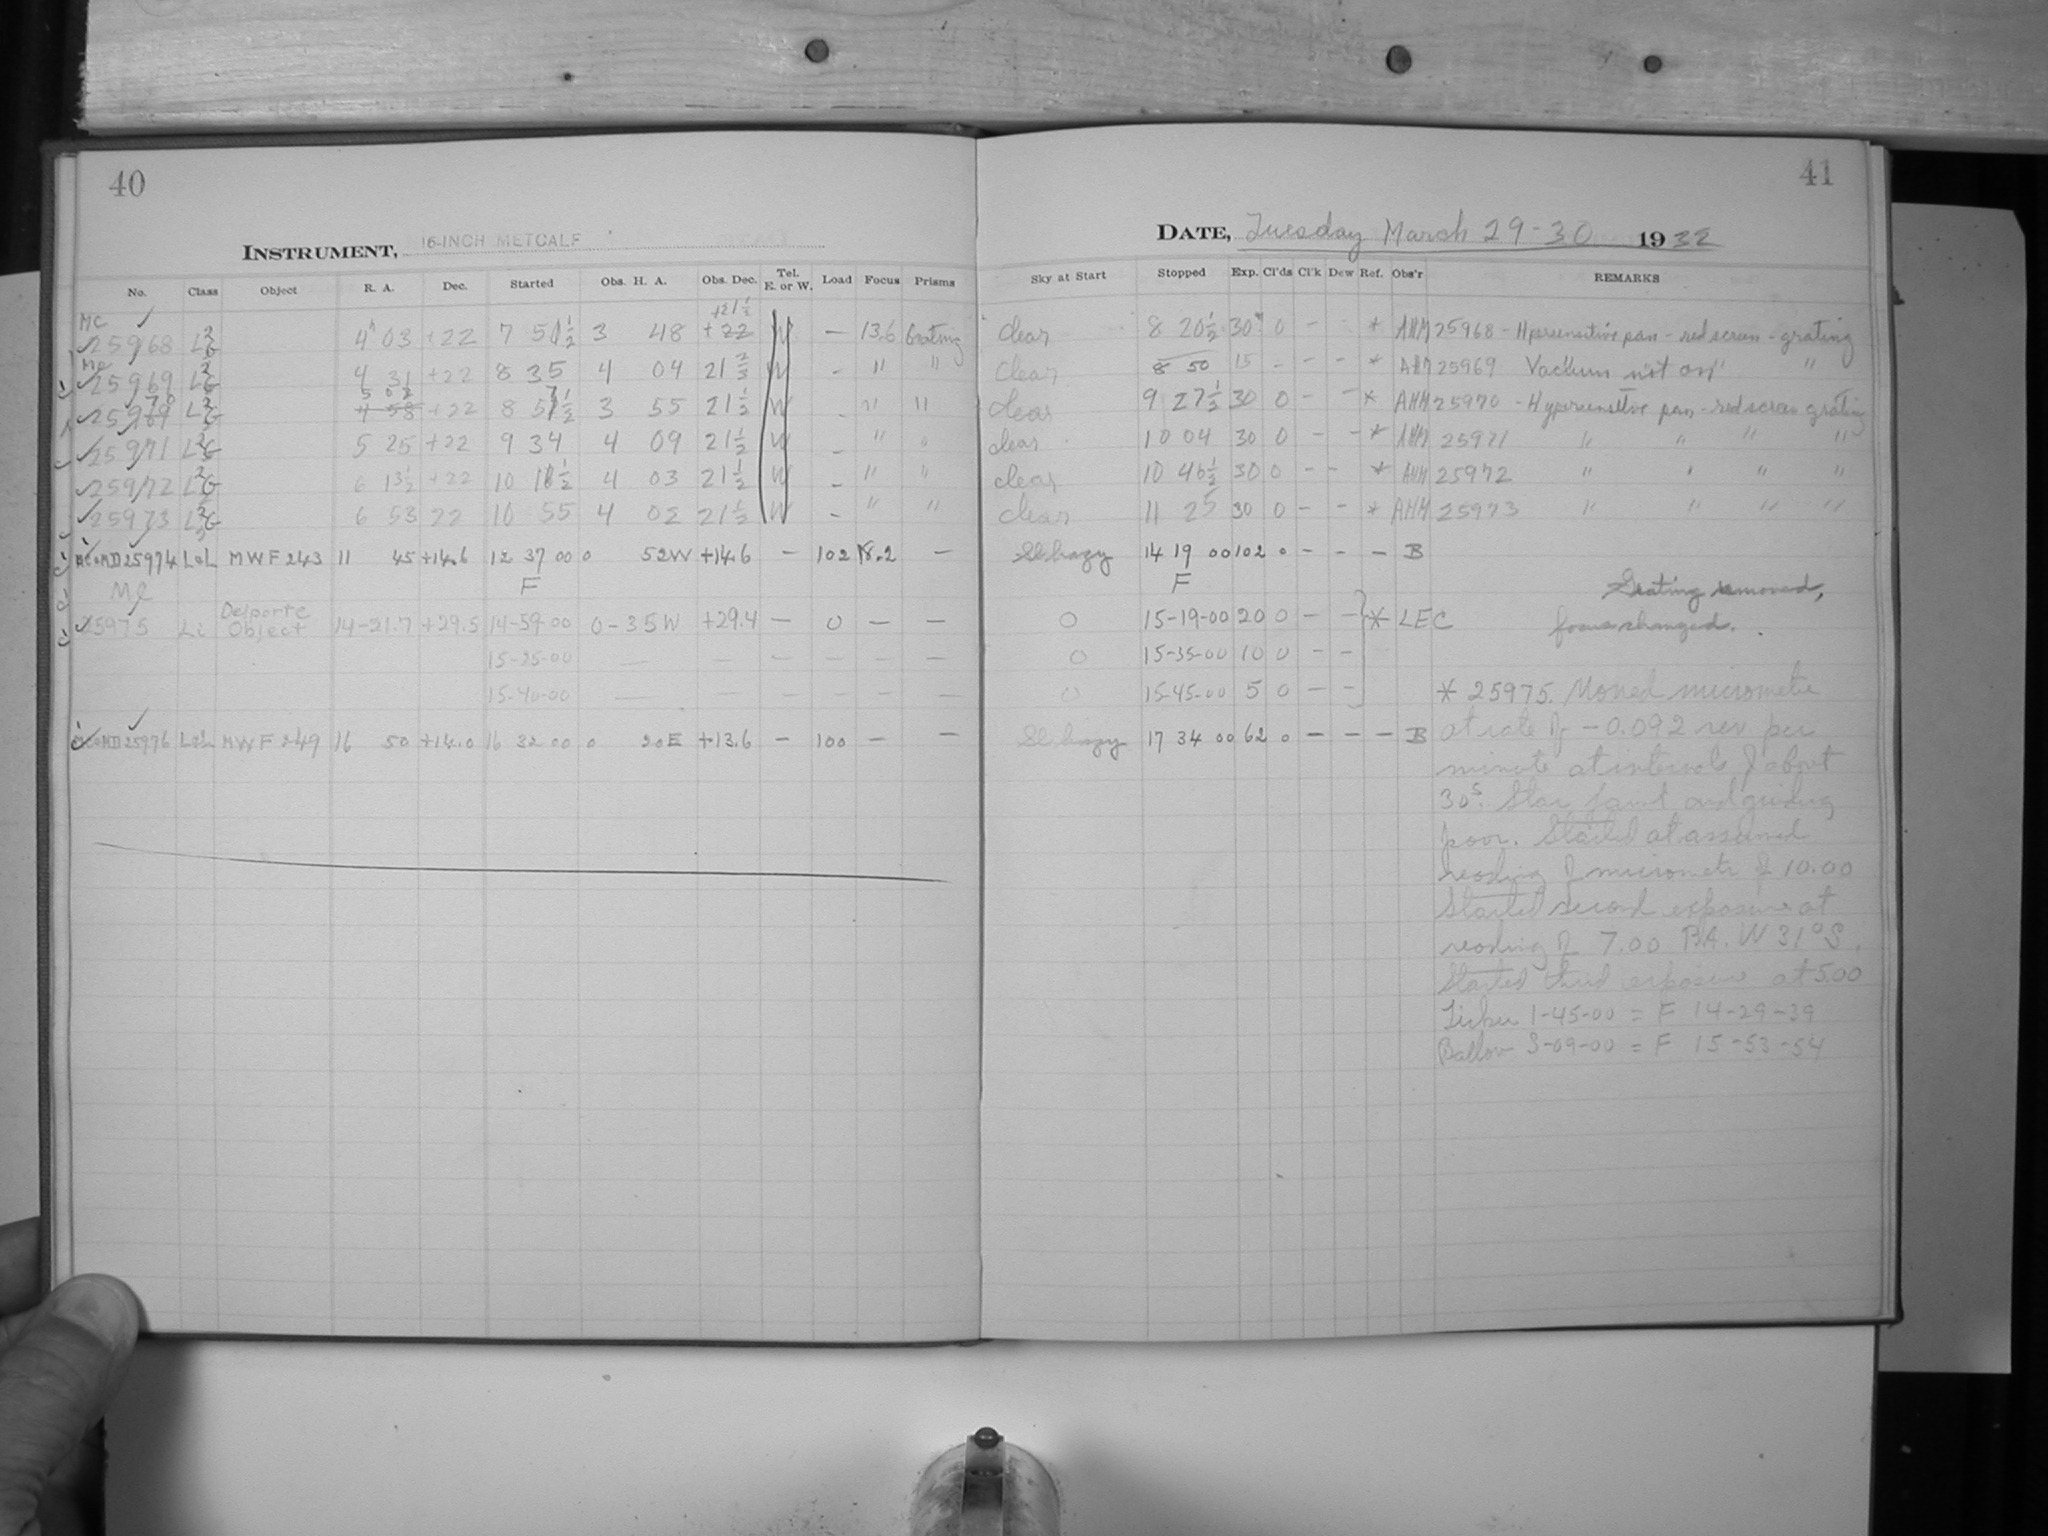 40
INSTRUMENT, 16-INCH METCALF
No. Class Object R. A. Dec. Started Obs. H. A. Obs. Dec. Tel. E. or W. Load Focus Prisms
MC +21½
25968 4h 03 +22 7 51½ 3 48 +22 W — 13.6 Grating
MC
25969 4 31 +22 8 35 4 04 21⅔ W - " "
5 02
4 58 +22 8 57½ 3 55 21½ W - " "
25971 5 25 +22 9 34 4 09 21½ W - " "
25972 6 13½ +22 10 16½ 4 03 21½ W - " "
25973 6 53 22 10 55 4 02 21½ W - " "
25974 LoL MWF 243 11 45 +14.6 12 37 00 0 52W +14.6 — 102 18.2 —
MC F
25975 Li Delporte Object 14-21.7 +29.5 14-59-00 0-35W +29.4 — 0 — —
15-25-00 — — — — — —
15-40-00 — — — — — —
25976 LoL MWF 249 16 50 +14.0 16 32 00 0 20E +13.6 — 100 — —
41
DATE, Tuesday March 29-30 1932
Sky at Start Stopped Exp. Cl'ds Cl'k Dew Ref. Obs'r REMARKS
clear 8 20½ 30 0 - - * AHM 25968 - Hpersensitive pan - red screen - grating
clear 8 50 15 - - - * AHM 25969 Vacuum not on "
clear 9 27½ 30 0 - - * AHM 25970 - Hypersensitve pan - red screen grating
clear 10 04 30 0 - - * AHM 25971 " " " "
clear 10 46½ 30 0 - - * AHM 25972 " " " "
clear 11 25 30 0 - - * AHM 25973 " " " "
Sl hazy 14 19 00 102 0 - - - B
F Grating removed,
0 15-19-00 20 0 - - * LEC focus changed.
0 15-35-00 10 0 - -
0 15-45-00 5 0 - - * 25975. Moved micrometer
Sl hazy 17 34 00 62 0 - - - B at rate of -0.092 rev per
minute at intervals of about
30s. Star faint and guiding
poor. Started at assumed
reading of micrometer of 10.00
Started second exposure at
reading of 7.00 P.A. W 31° S.
Started third exposure at 5.00
Ticker 1-45-00 = F 14-29-39
3-09-00 = F 15-53-54